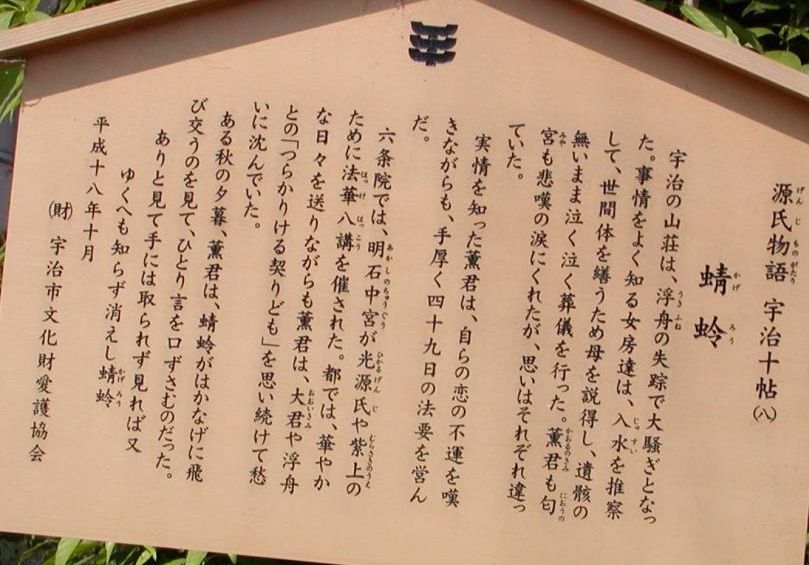 源氏物語 宇治十帖(八)
蜻蛉
宇治の山荘は、浮舟の失踪で大騒ぎとなっ
た。事情をよく知る女房達は、入水を推察
して、世間体を繕うため母を説得し、遺骸の
無いまま泣く泣く葬儀を行った。薫君も匂
宮も悲嘆の涙にくれたが、思いはそれぞれ違っ
ていた。
実情を知った薫君は、自らの恋の不運を嘆
きながらも、手厚く四十九日の法要を営ん
だ。
六条院では、明石中宮が光源氏や紫上の
ために法華八講を催された。都では、華やか
な日々を送りながらも薫君は、大君や浮舟
との「つらかりける契りども」を思い続けて愁
いに沈んでいた。
ある秋の夕暮、薫君は、蜻蛉がはかなげに飛
び交うのを見て、ひとり言を口ずさむのだった。
ありと見て手には取られず見れば又
ゆくへも知らず消えし蜻蛉
平成十八年十月
(財)宇治市文化財愛護協会